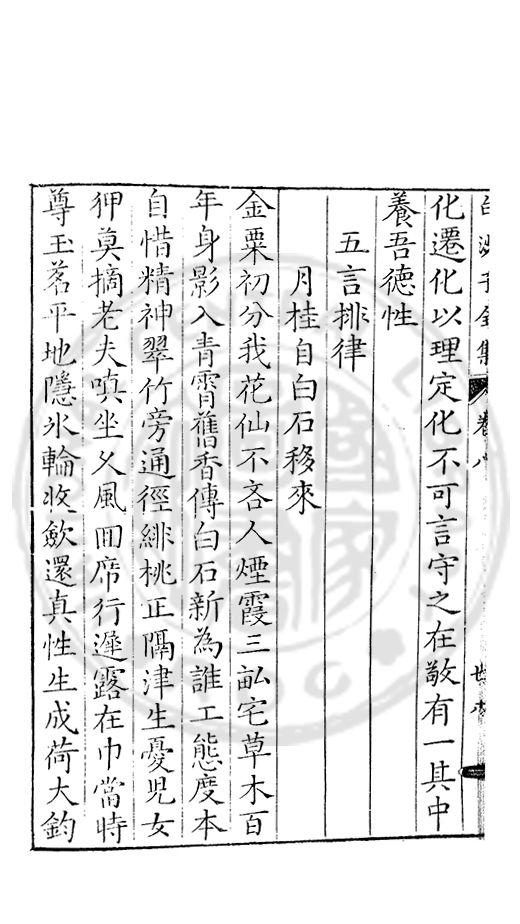 白沙子全集 卷八
化遷化以理定化不可言守之在敬有一其中
養吾德性
五言排律
月桂自白石移來
金粟初分我花仙不吝人煙霞三畆宅草木百
年身影入青霄舊香傳白石新為誰工態度本
自惜精神翠竹旁通徑緋桃正隔津生憂兒女
狎莫摘老夫嗔坐久風囬席行遲露在巾當時
尊玉茗平地隱氷輪收歛還真性生成荷大鈞